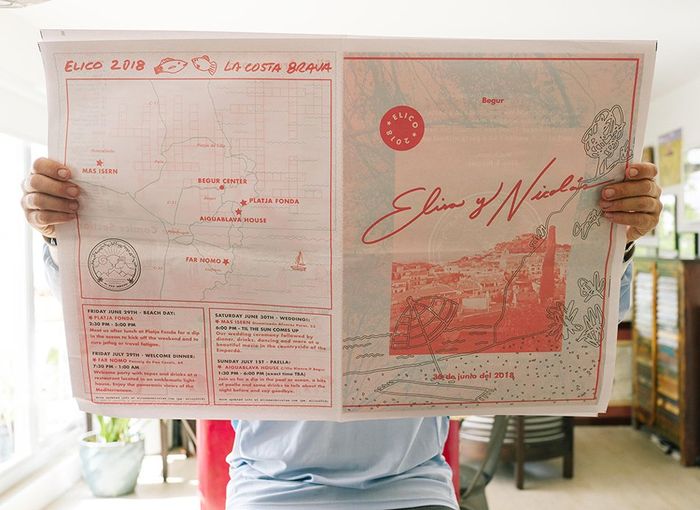 ELICO 2018 LA COSTA BRAVA
MAS ISERN
BEGUR CENTER
PLATJA FONDA
AIGUABLAVA HOUSE
FAR NOMO
FRIDAY JUNE 29TH - BEACH DAY:
PLATJA FONDA
2:30 PM - 5:00 PM
Meet us after lunch at Platja Fonda for a dip
in the ocean to kick off the weekend and to
cure jetlag or travel fatigue.
FRIDAY JULY 29TH - WELCOME DINNER:
FAR NOMO
7:30 PM - 1:00 AM
Welcome party with tapas and drinks at a
restaurant located in an emblematic light-
house. Enjoy the panoramic views of the
Mediterranean.
SATURDAY JUNE 30TH - WEDDING:
MAS ISERN
6:00 PM - TIL THE SUN COMES UP
Our wedding ceremony followed by
dinner, drinks, dancing and more at a
beautiful masia in the countryside of the
Empordà.
SUNDAY JULY 1ST - PAELLA:
AIGUABLAVA HOUSE
1:30 PM - 6:00 PM (exact time TBA)
Join us for a dip in the pool or ocean, a bite
of paella and some drinks to talk about the
night before and say goodbye.
Begur
ELICO
2018
Elisa y Nicolás
30 de junio del 2018